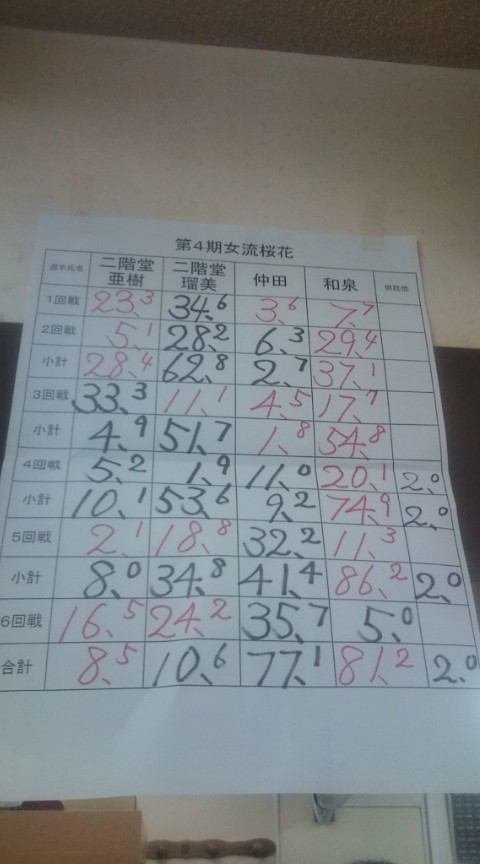 第4期女流桜花
選手氏名 二階堂亜樹 二階堂瑠美 仲田 和泉 供託他
1回戦 23.3 34.6 3.6 7.7
2回戦 5.1 28.2 6.3 29.4
小計 28.4 62.8 2.7 37.1
3回戦 33.3 11.1 4.5 17.7
小計 4.9 51.7 1.8 54.8
4回戦 5.2 1.9 11.0 20.1 2.0
小計 10.1 53.6 9.2 74.9 2.0
5回戦 2.1 18.8 32.2 11.3
小計 8.0 34.8 41.4 86.2 2.0
6回戦 16.5 24.2 35.7 5.0
合計 8.5 10.6 77.1 81.2 2.0